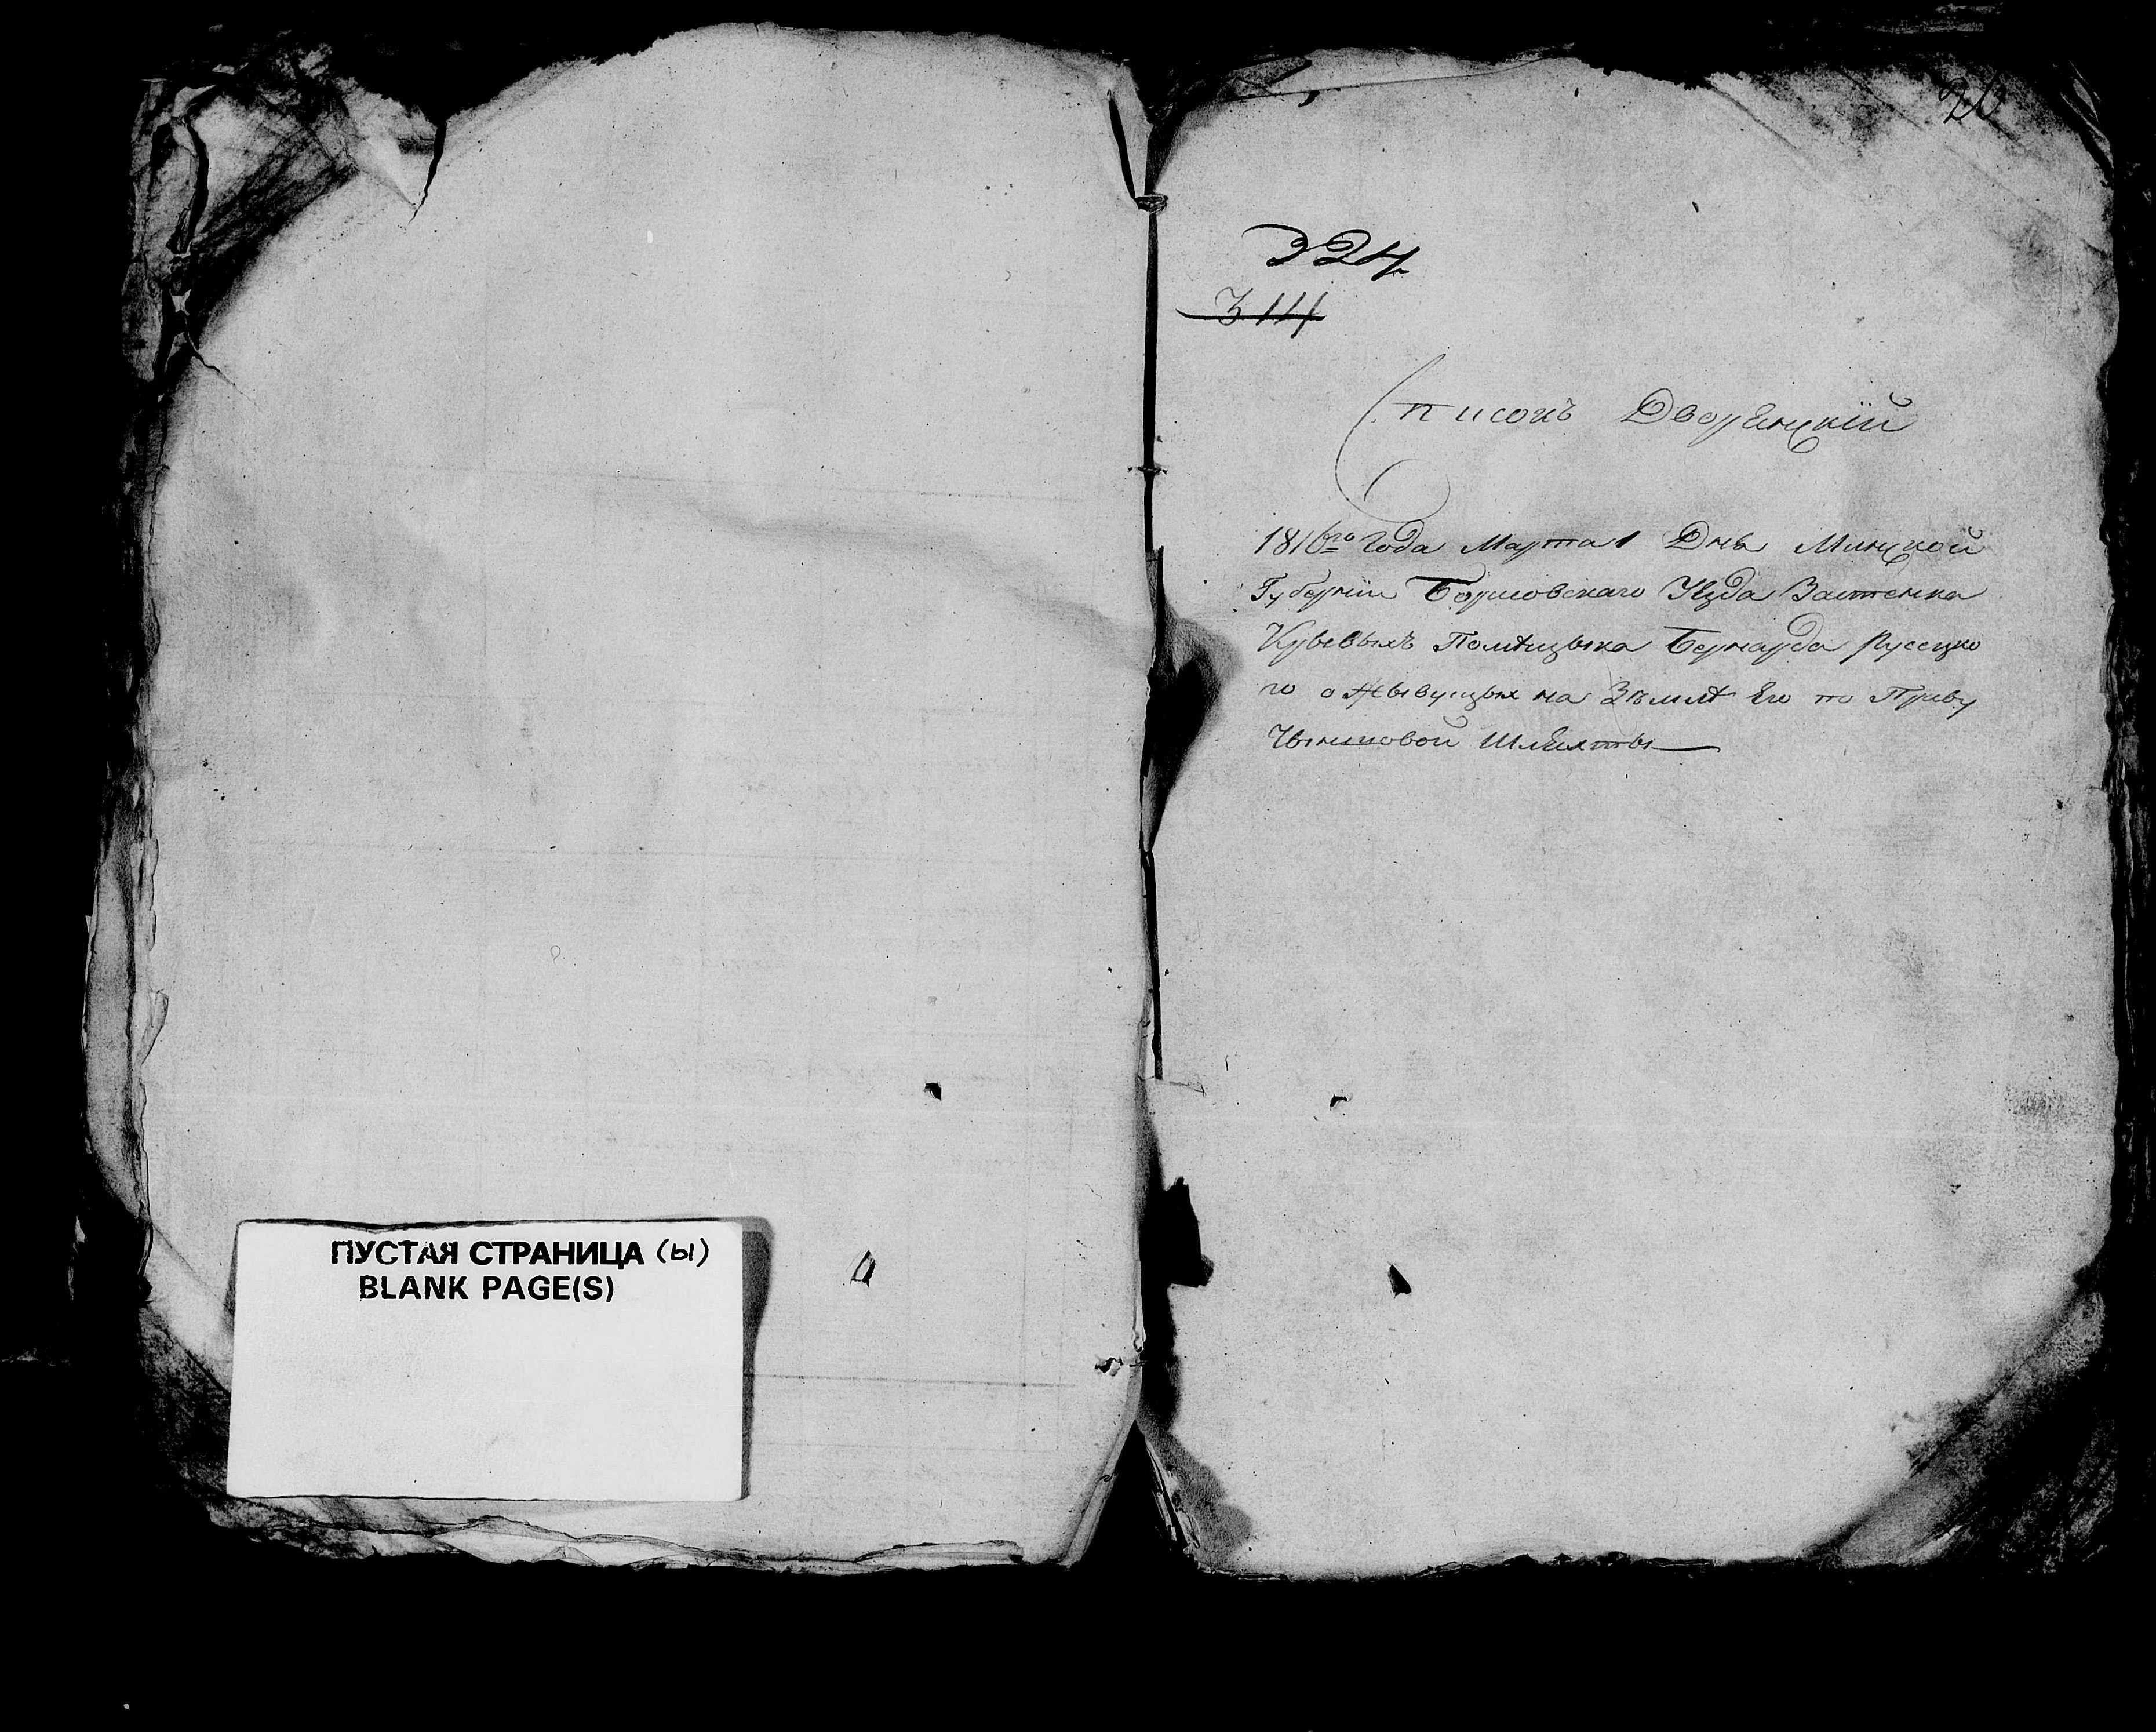 ПУСТАЯ СТРАНИЦА (ы)
BLANK PAGE(S)
324
314
Списокъ Дворянский
1816го Года Марта 1 Дня Минской
Губернии Борисовскаго Уезда Застенка
Помѣщыка Бернарда Русецко
го о Жывущых на Землѣ Его по Праву
Чыншовой Шляхты